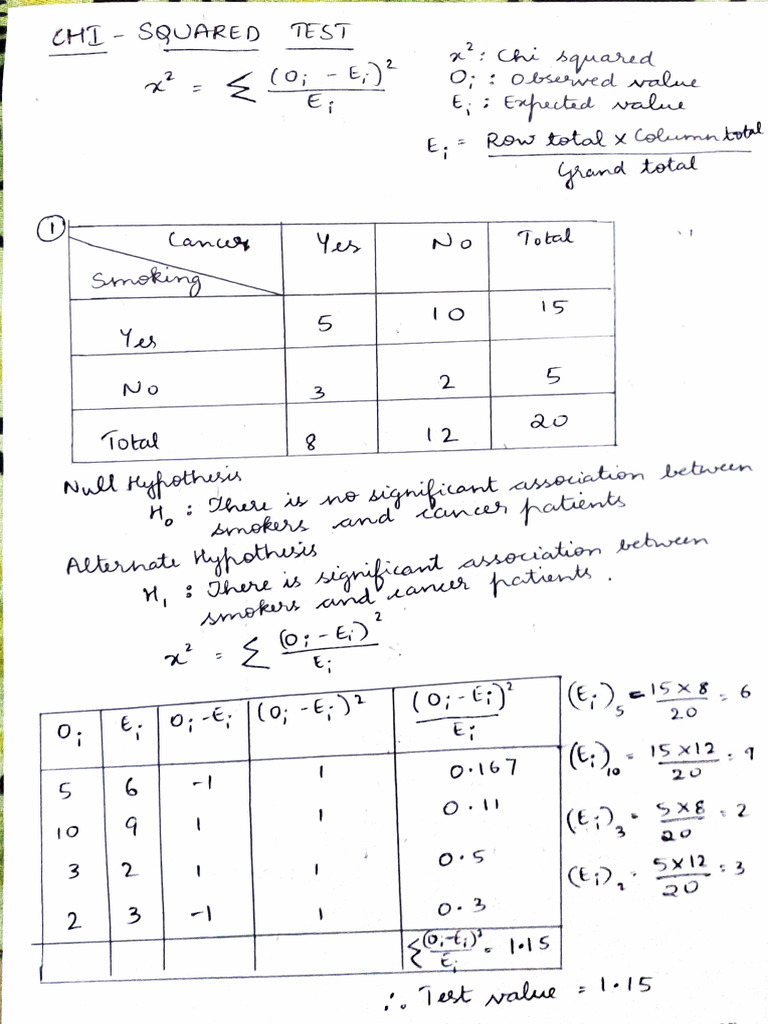 CHI - SQUARED TEST
x² = Σ (Oi - Ei)² / Ei
x² : Chi squared
Oi : Observed value
Ei : Expected value
Ei = Row total × Column total / Grand total
① Cancer Yes No Total
Smoking
Yes 5 10 15
No 3 2 5
Total 8 12 20
Null Hypothesis
H₀ : There is no significant association between
smokers and cancer patients
Alternate Hypothesis
H₁ : There is significant association between
smokers and cancer patients.
x² = Σ (Oi - Ei)² / Ei
Oi Ei Oi - Ei (Oi - Ei)² (Oi - Ei)² / Ei
5 6 -1 1 0.167
10 9 1 1 0.11
3 2 1 1 0.5
2 3 -1 1 0.3
Σ (Oi - Ei)² / Ei = 1.15
(Ei)₅ = 15 × 8 / 20 = 6
(Ei)₁₀ = 15 × 12 / 20 = 9
(Ei)₃ = 5 × 8 / 20 = 2
(Ei)₂ = 5 × 12 / 20 = 3
∴ Test value = 1.15